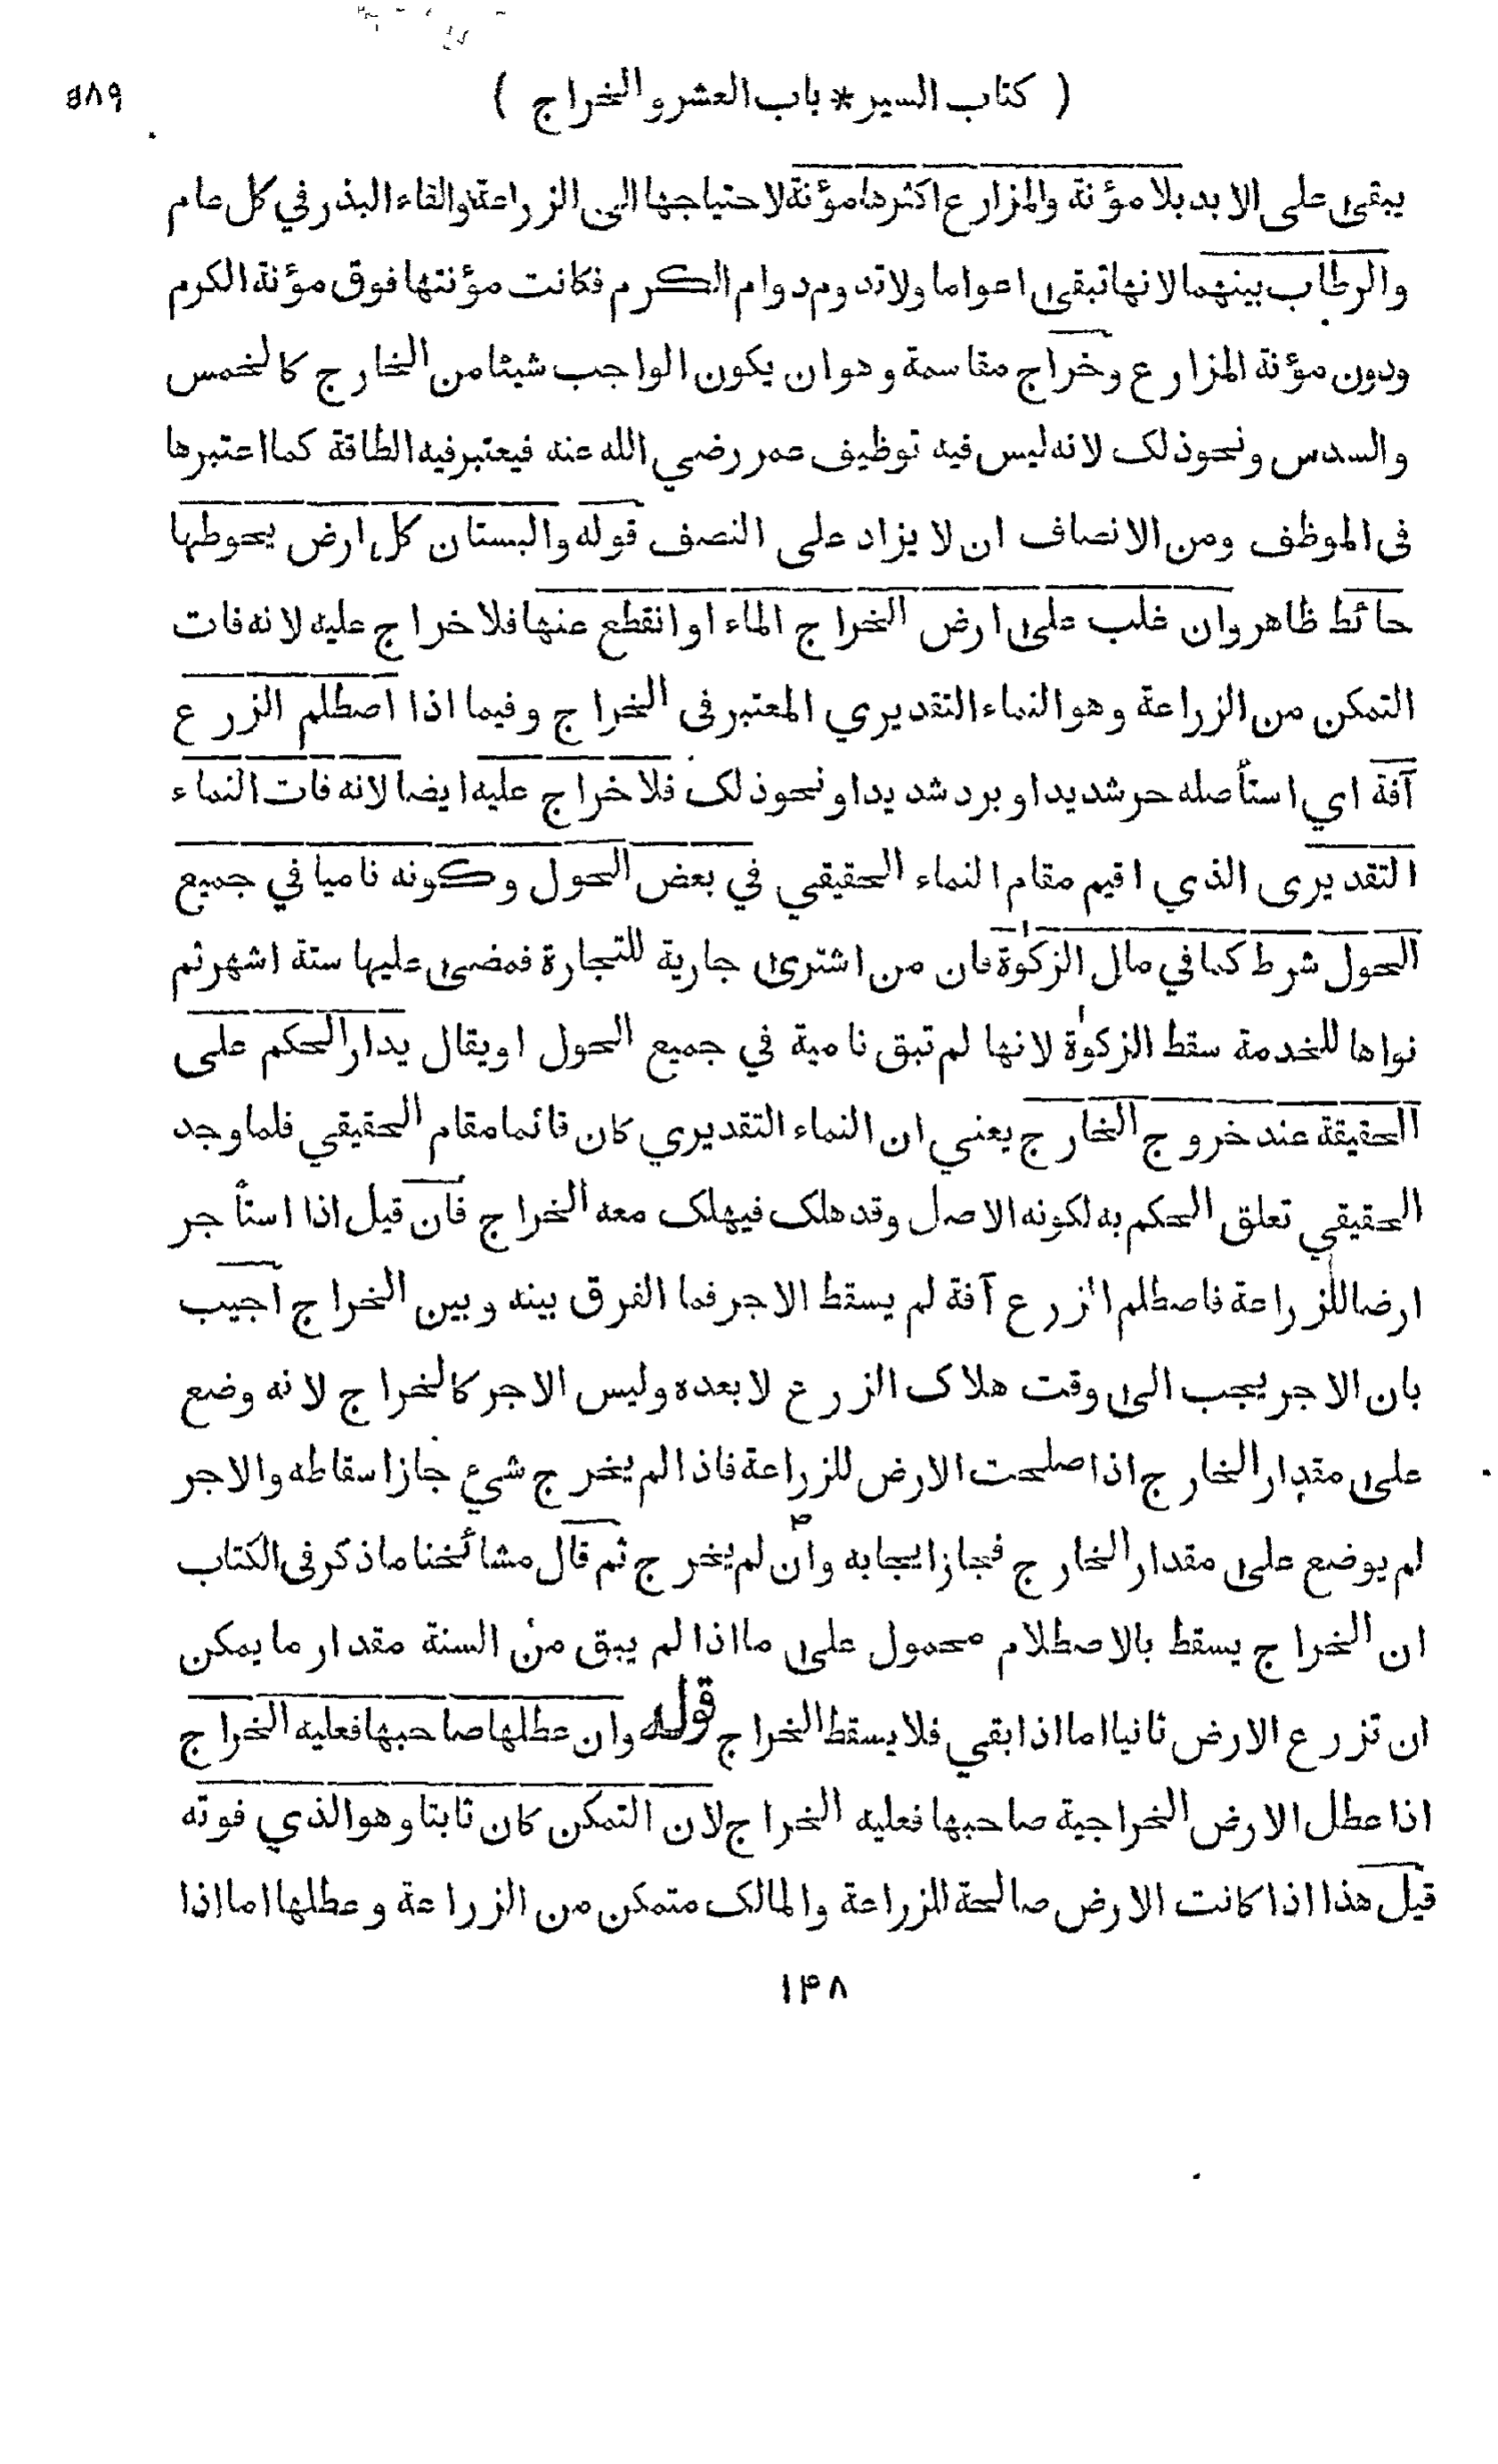 ( كتاب السير * باب العشر والخراج ) ٥٨٩
يبقى على الابد بلا مؤنة والمزارع اكثرها مؤنة لاحتياجها الى الزراعة والقاء البذر في كل عام
والرطاب بينهما لانها تبقى اعواما ولا تدوم دوام الكرم فكانت مؤنتها فوق مؤنة الكرم
ودون مؤنة المزارع وخراج مقاسمة وهو ان يكون الواجب شيئا من الخارج كالخمس
والسدس ونحو ذلك لانه ليس فيه توظيف عمر رضي الله عنه فيعتبر فيه الطاقة كما اعتبرها
في الموظف ومن الانصاف ان لا يزاد على النصف قوله والبستان كل ارض يحوطها
حائط ظاهر وان غلب على ارض الخراج الماء او انقطع عنها فلا خراج عليه لانه فات
التمكن من الزراعة وهو النماء التقديري المعتبر في الخراج وفيما اذا اصطلم الزرع
آفة اي استأصله حر شديد او برد شديد او نحو ذلك فلا خراج عليه ايضا لانه فات النماء
التقديرى الذي اقيم مقام النماء الحقيقي في بعض الحول وكونه ناميا في جميع
الحول شرط كما في مال الزكوة فان من اشترى جارية للتجارة فمضى عليها ستة اشهر ثم
نواها للخدمة سقط الزكوة لانها لم تبق نامية في جميع الحول او يقال يدار الحكم على
الحقيقة عند خروج الخارج يعني ان النماء التقديري كان قائما مقام الحقيقي فلما وجد
الحقيقي تعلق الحكم به لكونه الاصل وقد هلك فيهلك معه الخراج فان قيل اذا استأجر
ارضا للزراعة فاصطلم الزرع آفة لم يسقط الاجر فما الفرق بينه وبين الخراج اجيب
بان الاجر يجب الى وقت هلاك الزرع لا بعده وليس الاجر كالخراج لانه وضع
على مقدار الخارج اذا صلحت الارض للزراعة فاذا لم يخرج شئ جاز اسقاطه والاجر
لم يوضع على مقدار الخارج فجاز ايجابه وان لم يخرج ثم قال مشائخنا ما ذكر في الكتاب
ان الخراج يسقط بالاصطلام محمول على ما اذا لم يبق من السنة مقدار ما يمكن
ان تزرع الارض ثانيا اما اذا بقي فلا يسقط الخراج قوله وان عطلها صاحبها فعليه الخراج
اذا عطل الارض الخراجية صاحبها فعليه الخراج لان التمكن كان ثابتا وهو الذي فوته
قيل هذا اذا كانت الارض صالحة للزراعة والمالك متمكن من الزراعة وعطلها اما اذا
١۴٨